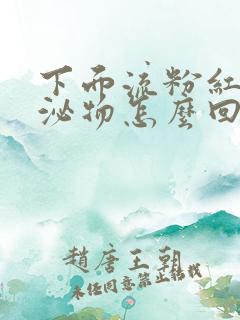 下面流粉紅
泌物怎麼回
趙唐王朝
未經同意禁止轉載